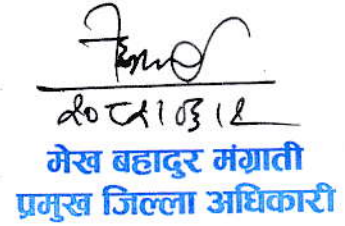 २०८२।०३।८
मेख बहादुर मंग्राती
प्रमुख जिल्ला अधिकारी